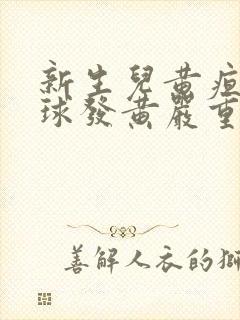 新生兒黃疸
球發黃嚴重
善解人衣的獅